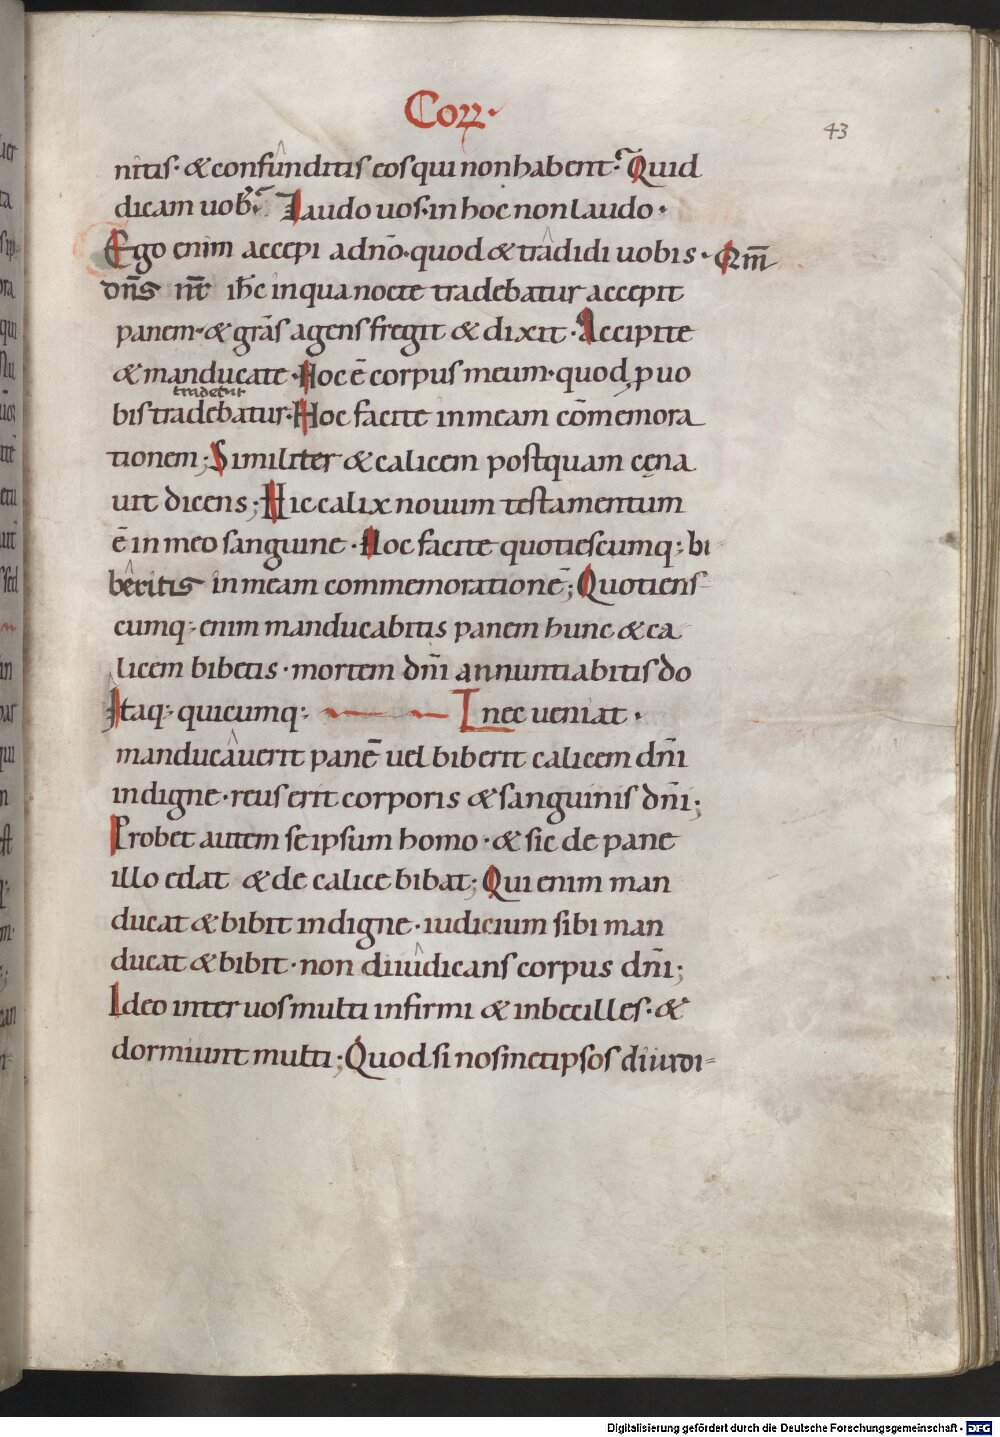 Corr·
43
nitis· & confunditis eos qui non habent· Quid
dicam uob· Laudo uos· in hoc non laudo·
Ego enim accepi a dn̄o· quod & tradidi uobis· Qm̄
dn̄s nr̄ ih̄c in qua nocte tradebatur accepit
panem· & grās agens fregit & dixit· Accipite
& manducate· Hoc ē corpus meum· quod ꝓ uo
tradetur
bis tradebatur· Hoc facite in meam cōmemora
tionem; Similiter & calicem postquam cęna
uit dicens; Hic calix nouum testamentum
ē in meo sanguine· Hoc facite quotiescumq; bi
beritis in meam commemorationē; Quotiens
cumq; enim manducabitis panem hunc & ca
licem bibetis· mortem dn̄i annuntiabitis do
Itaq; quicumq; nec ueniat·
manducauerit panē uel biberit calicem dn̄i
indigne· reus erit corporis & sanguinis dn̄i;
Probet autem se ipsum homo· & sic de pane
illo edat & de calice bibat; Qui enim man
ducat & bibit indigne· iudicium sibi man
ducat & bibit· non diiudicans corpus dn̄i;
Ideo inter uos multi infirmi & inbecilles· &
dormiunt multi; Quod si nosmetipsos
Digitalisierung gefördert durch die Deutsche Forschungsgemeinschaft - DFG